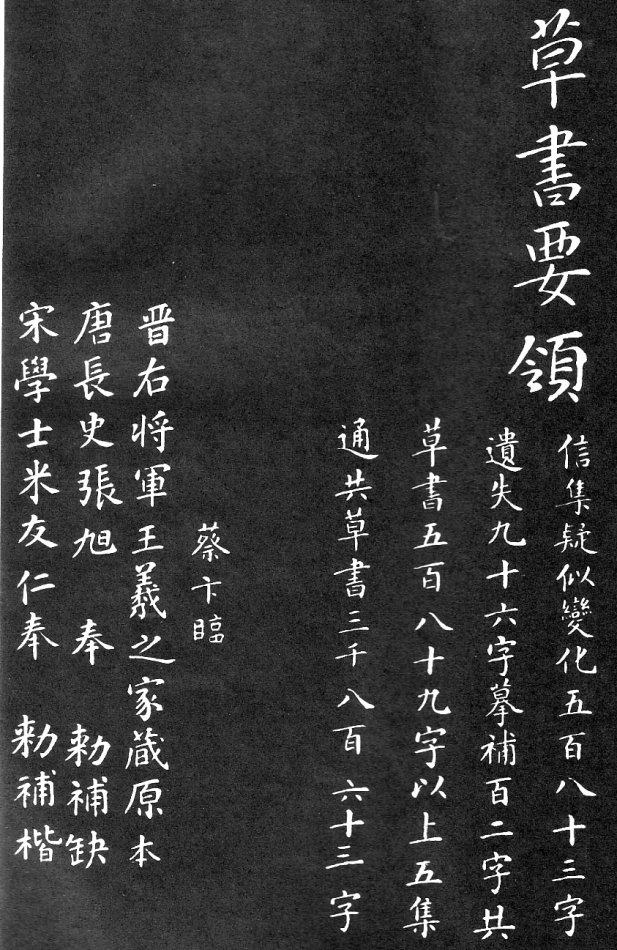 草書要領
信集疑似變化五百八十三字
遺失九十六字摹補百二字共
草書五百八十九字以上五集
通共草書三千八百六十三字
蔡卞臨
晋右將軍王羲之家蔵原本
唐長史張旭奉勅補缺
宋學士米友仁奉勅補楷